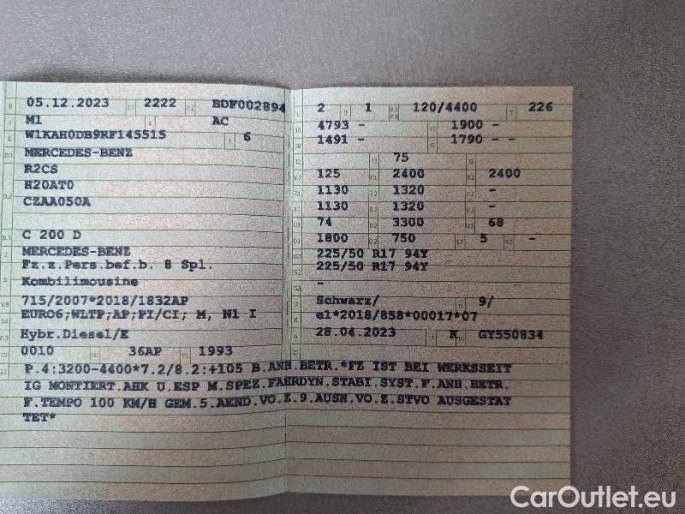 05.12.2023 2222 BDF002894
M1 AC
W1KAH0DB9RF145515 6
MERCEDES-BENZ
R2CS
H20AT0
CZAA050A
C 200 D
MERCEDES-BENZ
Fz.z.Pers.bef.b. 8 Spl.
Kombilimousine
715/2007*2018/1832AP
EURO6;WLTP;AP;PI/CI; M, N1 I
Hybr.Diesel/E
0010 36AP 1993
2 1 120/4400 226
4793 - 1900 --
1491 - 1790 --
75
125 2400 2400
1130 1320 -
1130 1320 -
74 3300 68
1800 750 5 -
225/50 R17 94Y
225/50 R17 94Y
-
Schwarz/ 9/
e1*2018/858*00017*07
28.04.2023 K GY550834
P.4:3200-4400*7.2/8.2:+105 B.ANH.BETR.*FZ IST BEI WERKSSEIT
IG MONTIERT.AHK U.ESP M.SPEZ.FAHRDYN.STABI.SYST.F.ANH.BETR.
F.TEMPO 100 KM/H GEM.5.AEND.VO.Z.9.AUSN.VO.Z.STVO AUSGESTAT
TET*
CarOutlet.eu